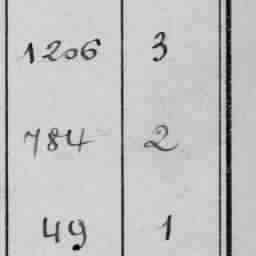 1206 3
784 2
49 1